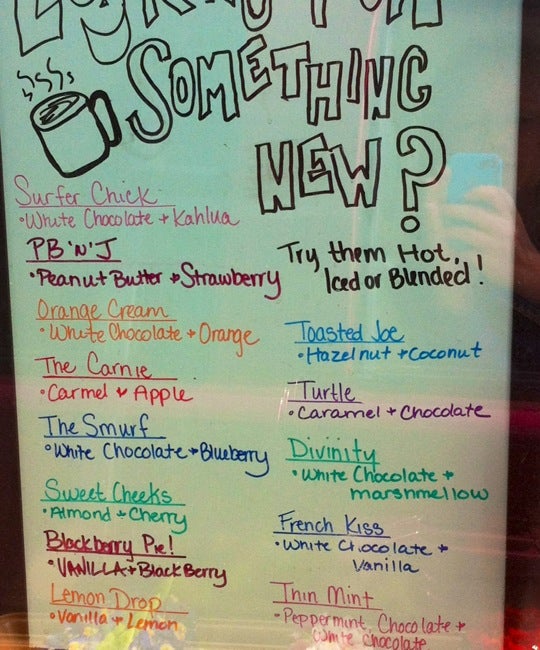 LOOKING FOR
SOMETHING
NEW?
Surfer Chick
•White Chocolate + Kahlua
PB 'N' J
•Peanut Butter + Strawberry
Orange Cream
•White Chocolate + Orange
The Carnie
•Carmel + Apple
The Smurf
•White Chocolate + Blueberry
Sweet Cheeks
•Almond + Cherry
Blackberry Pie!
•VANILLA + BlackBerry
Lemon Drop
•Vanilla + Lemon
Try them Hot,
Iced or Blended!
Toasted Joe
•Hazelnut + Coconut
Turtle
•Caramel + Chocolate
Divinity
•White Chocolate +
marshmellow
French Kiss
•White Chocolate +
Vanilla
Thin Mint
•Peppermint, Chocolate +
White Chocolate